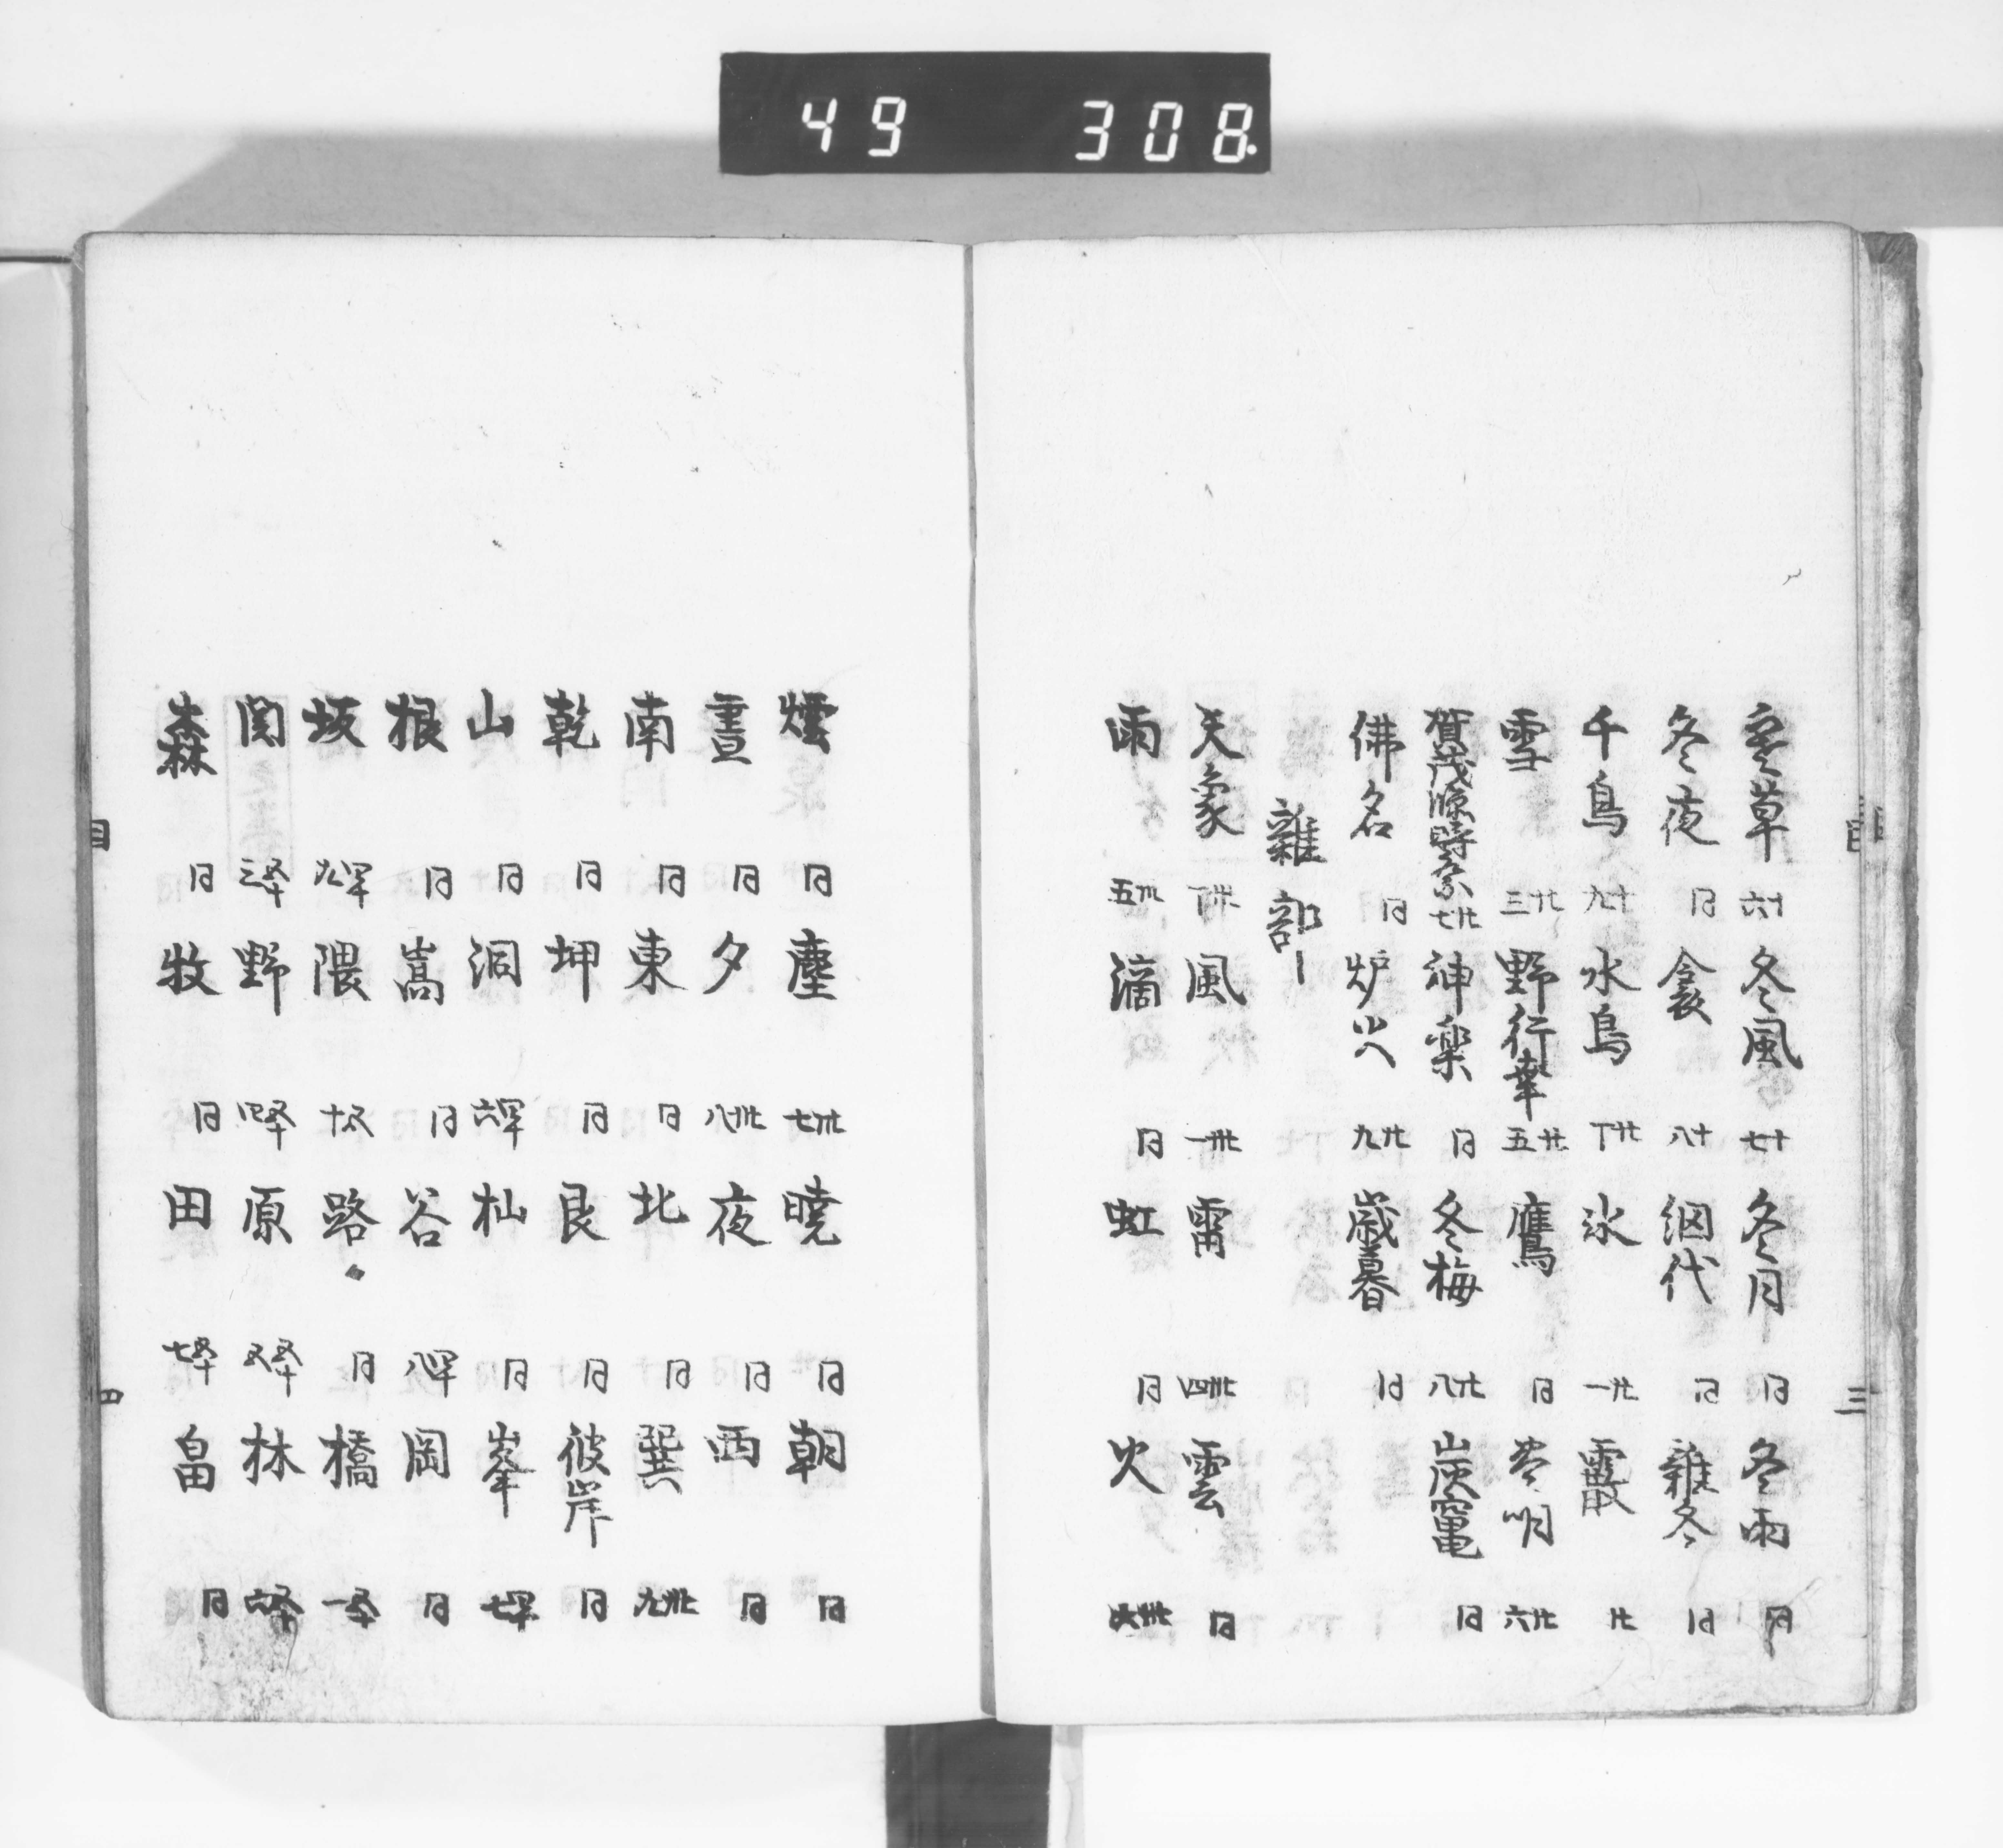 49 308
寒草 十六 冬風 十七 冬月 同 冬雨 同
冬夜 同 衾 十八 網代 同 雜冬 同
千鳥 十九 水鳥 廿丁 氷 廿一 霰 廿
雪 廿三 野行幸 廿五 鷹 同 豊明 廿六
賀茂臨時祭 廿七 神楽 同 冬梅 廿八 炭竈 同
佛名 同 炉火 廿九 歳暮 同
雜部
天象 丗丁 風 丗一 雷 丗四 雲 同
雨 丗五 滴 同 虹 同 火 丗六
三
煙 同 塵 丗七 暁 同 朝 同
晝 同 夕 丗八 夜 同 西 同
南 同 東 同 北 同 巽 丗九
乾 同 坤 同 艮 同 彼岸 同
山 同 洞 四十六 杣 同 峯 四十七
根 同 嵩 同 谷 四十八 岡 同
坂 四十九 隈 五十 路 同 橋 五十一
関 五十三 野 五十四 原 五十五 林 五十六
森 同 牧 同 田 五十七 畠 同
目 四